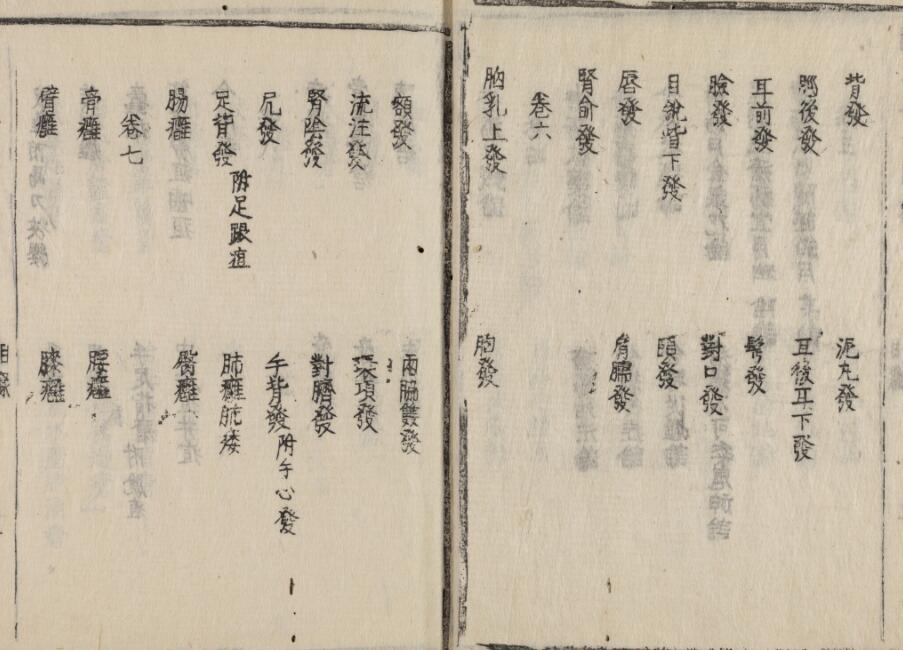 背發
泥丸發
腦後發
耳後耳下發
耳前發
髩發
臉發
對口發
目銳眥下發
頤發
唇發
肩臑發
腎俞發
卷六
胸乳上發
胸發
額發
兩脇雙發
流注發
環項發
腎陰發
對臍發
尻發
手背發 附手心發
足背發 附足跟疽
肺癰肺痿
腸癰
臀癰
卷七
骨癰
腰癰
臂癰
膝癰